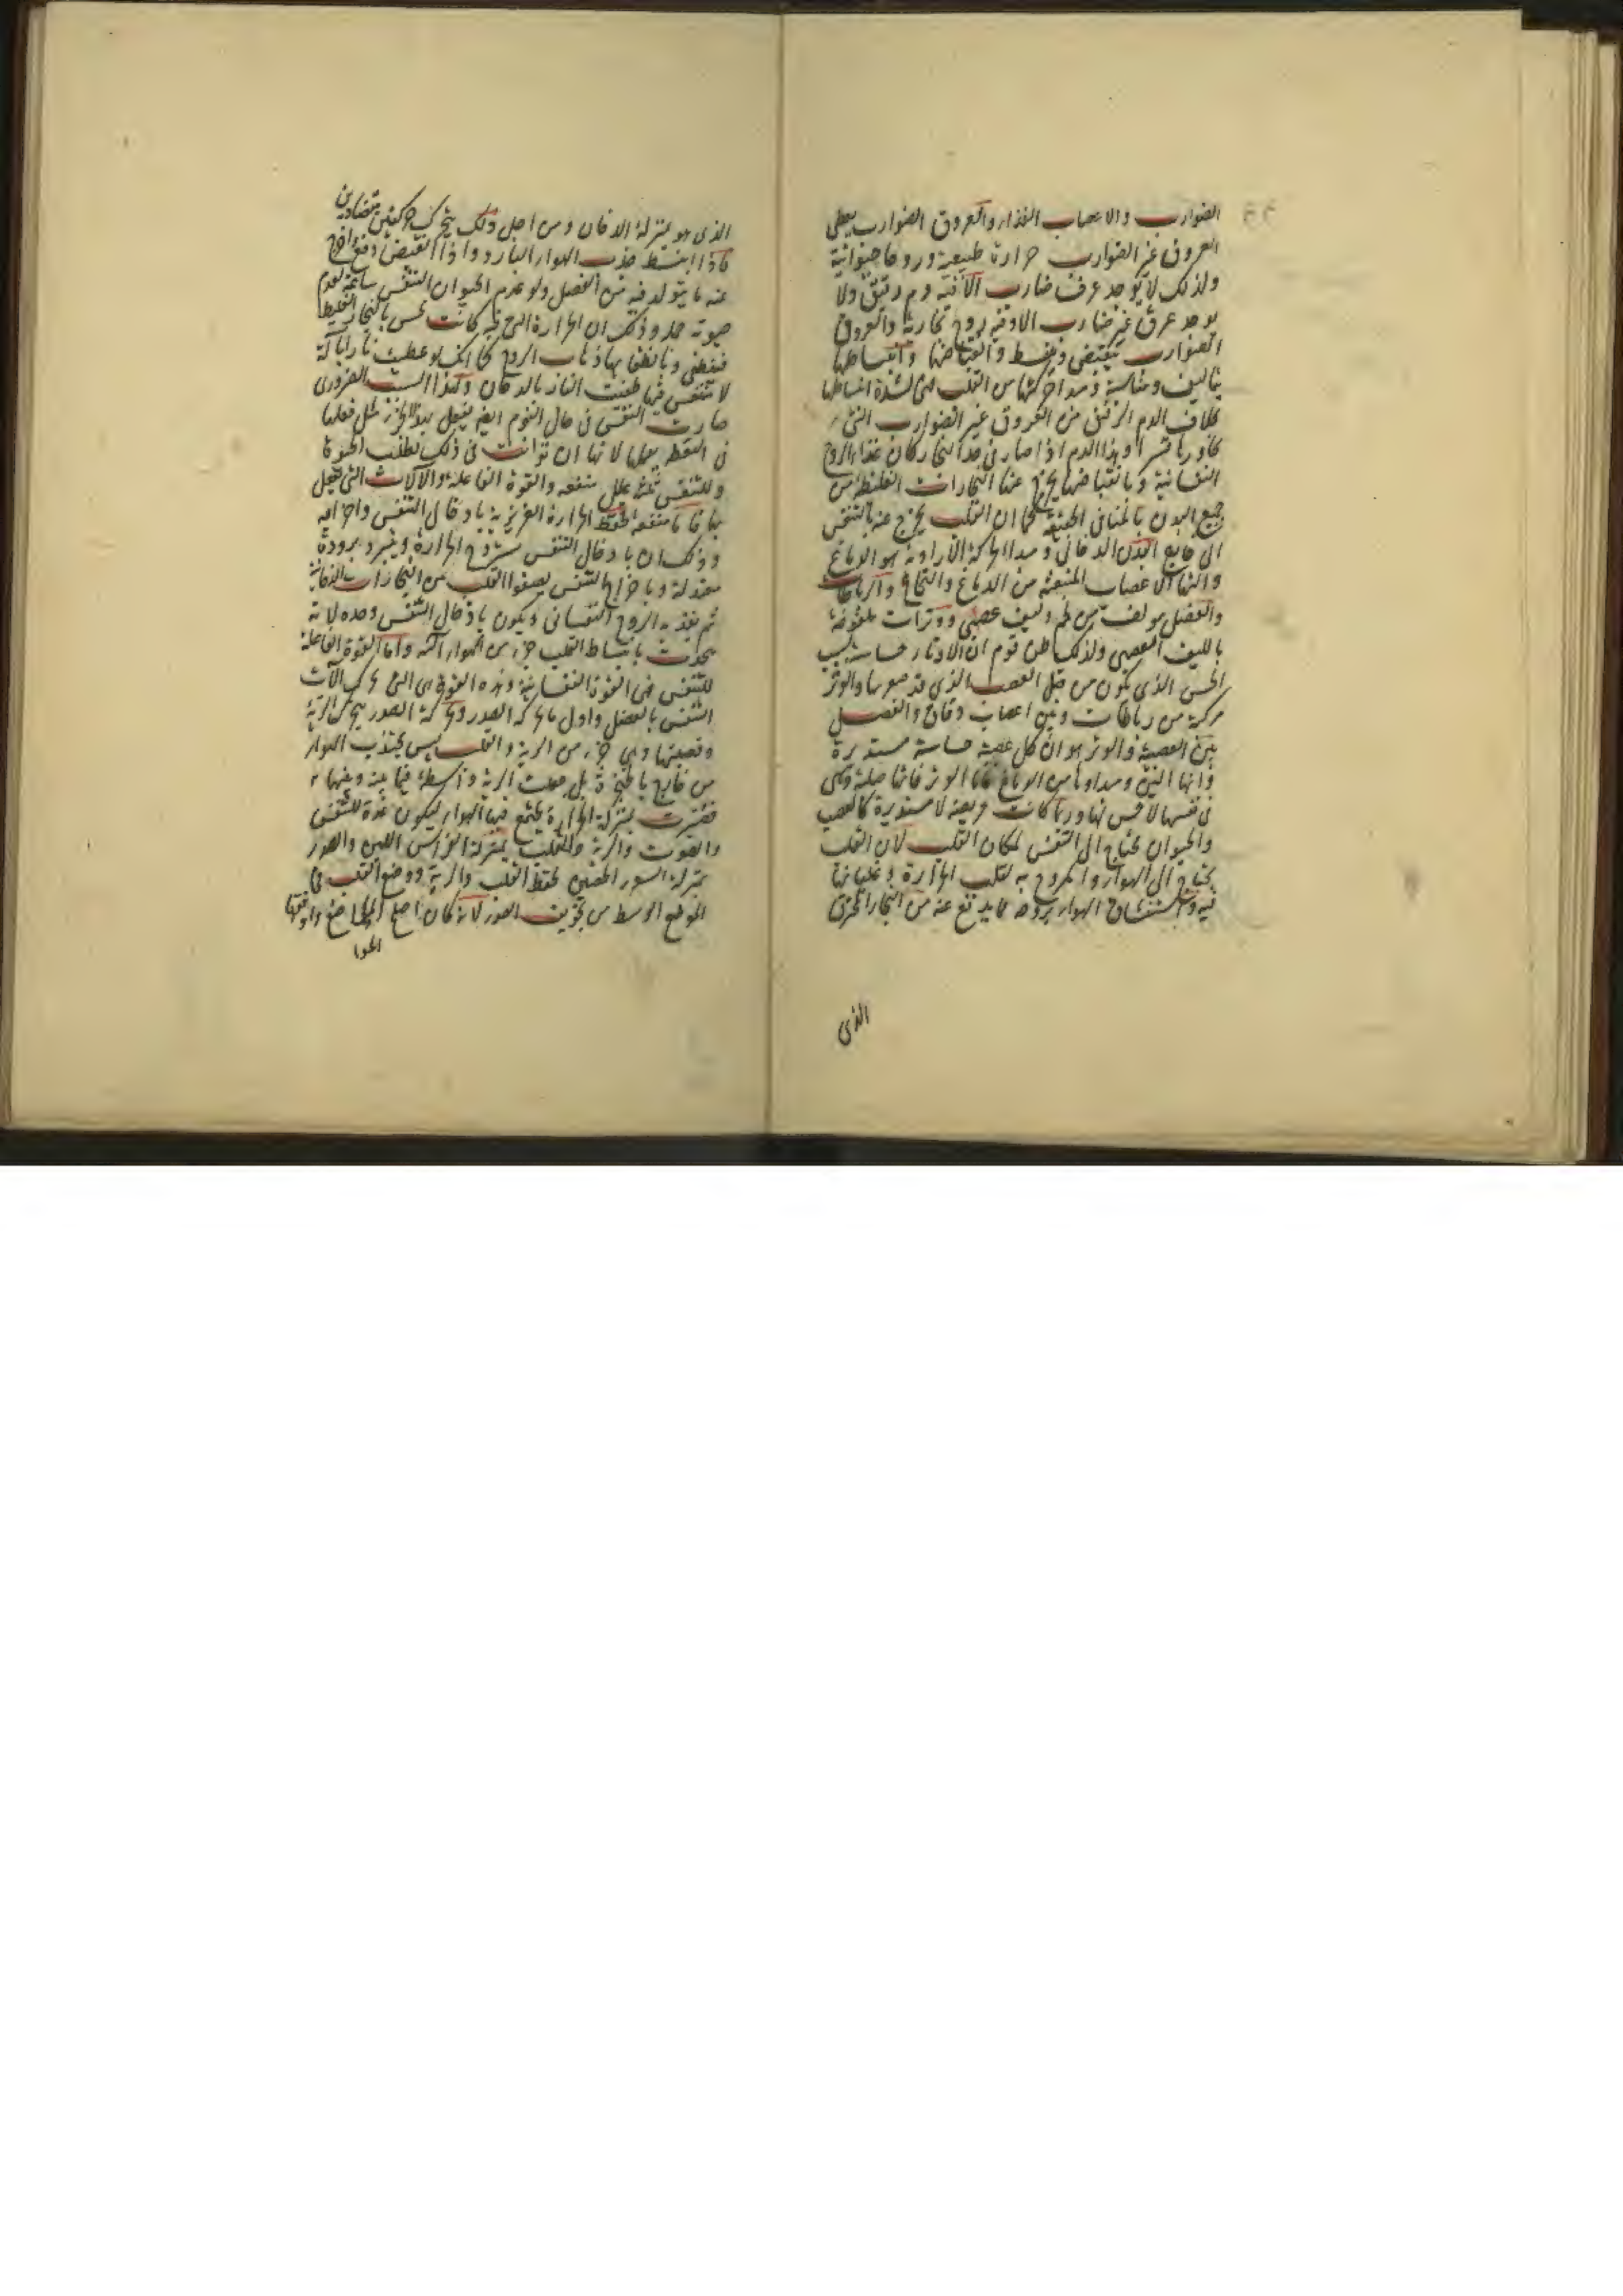 ٤٤
الضوارب والاعصاب الغذاء والعروق الضوارب يعطى
العروق غير الضوارب حرارة طبيعية وروحا حيوانية
ولذلك لا يوجد عرق ضارب الا وفيه دم رقيق ولا
يوجد عرق غير ضارب الا وفيه روح بخارية والعروق
الضوارب ينقبض وينبسط وانقباضها وانبساطها
بتاليف ومناسبة ومبدا حركتها من القلب فهى لشدة انبساطها
الدم الرقيق من العروق غير الضوارب التى
وهذا الدم اذا صار فى حد البخار كان غذاء الروح
النفسانية وبانقباضها يخرج عنها البخارات الغليظة من
جميع البدن بالمنافس الخفية كما ان القلب يخرج عنه بالتنفس
الى خارج البدن الدخانى ومبدا الحركة الارادية هو الدماغ
والتها الاعصاب المنبعثة من الدماغ والنخاع والرباطات
والعضل مولف من لحم وليف عصبى ووترات ملفوفة
بالليف العصبى ولذلك ظن قوم ان الاوتار حساسة بسبب
الحس الذى يكون من قبل العصب الذى والوتر
مركبة من رباطات وبين اعصاب دقاق والفصل
بين العصبة والوتر هو ان كل عصبة حساسة مستديرة
وانها الين ومبداها من الدماغ فاما الوتر فانها صلبة وهى
فى نفسها لا حس لها وربما كانت عريضة لا مستديرة كالعصب
والحيوان يحتاج الى التنفس لمكان القلب لان القلب
يحتاج الى الهواء والمروح به لتلك الحرارة وغليانها
فيه واستنشاق الهواء يروحه مما يدفع عنه من البخار المحترق
الذى
الذى هو بمنزلة الدخان ومن اجل ذلك يتحرك حركتين متضادتين
فاذا انبسط جذب الهواء البارد واذا انقبض دفع واخرج
عنه ما يتولد فيه من الفضل ولو عدم الحيوان التنفس ساعة لعدم
حيوته وذلك ان الحرارة التى فيه كانت تحس بالبخار الغليظ
فتنطفى وبانطفائها ذهاب الروح كما انك لو غطيت نارا بالة
لا تتنفس فيها طفيت النار بالدخان ولهذا السبب الضرورى
صارت النفس فى حال النوم ايضا يفعل بهذا الجزء مثل فعلها
فى اليقظة لانها ان توانت فى ذلك بطلت الحيوة
وللتنفس ثلثة علل منفعه والقوة الفاعلة والالات التى يفعل
بها فاما منفعه لحفظ الحرارة الغريزية بادخال التنفس واخراجه
وذلك ان بادخال التنفس يتروح الحرارة ويتبرد برودة
معتدلة وباخراج التنفس يصفوا القلب من البخارات الدخانية
ثم يغذيه الروح النفسانى ويكون بادخال التنفس وحده لانه
يحدث بانبساط القلب جزء من الهواء اليه واما القوة الفاعلة
للتنفس فهى القوة النفسانية وهذه القوة هى التى تحرك الات
التنفس بالعضل واول ما يحركه الصدر وبحركة الصدر يتحرك الرية
وقصبتها وهى جزء من الرية والقلب ليس يجتذب الهواء
من خارج بالحنجرة بل جعلت الرية واسطة فيما بينه وبينها
فصيرت بمنزلة الخزانة يجتمع فيها الهواء ليكون عدة للتنفس
والصوت والرية للقلب بمنزلة الفراش اللين والصدر
بمنزلة السور الحصين لحفظ القلب والرية ووضع القلب فى
الموضع الاوسط من تجويف الصدر لانه كان اصلح المواضع واوفقها
الهوا